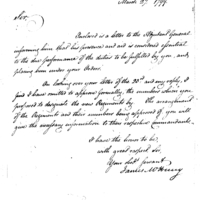 March 27 1799.
Sir,
Enclosed is a letter to the Adjutant General
informing him that his presence and aid is considered essential
to the due performance of the duties to be fulfilled by you, and
placing him under your Orders.
On looking over your letter of the 20th and my reply, I
find I have omitted to approve formally, the numbers which you
proposed to designate the new Regiments by. The arrangement
of the Regiments and their numbers being approved of, you will
give the necessary information to their respective commandants.
I have the honor to be
with great respect Sir,
Your obt servant
James McHenry